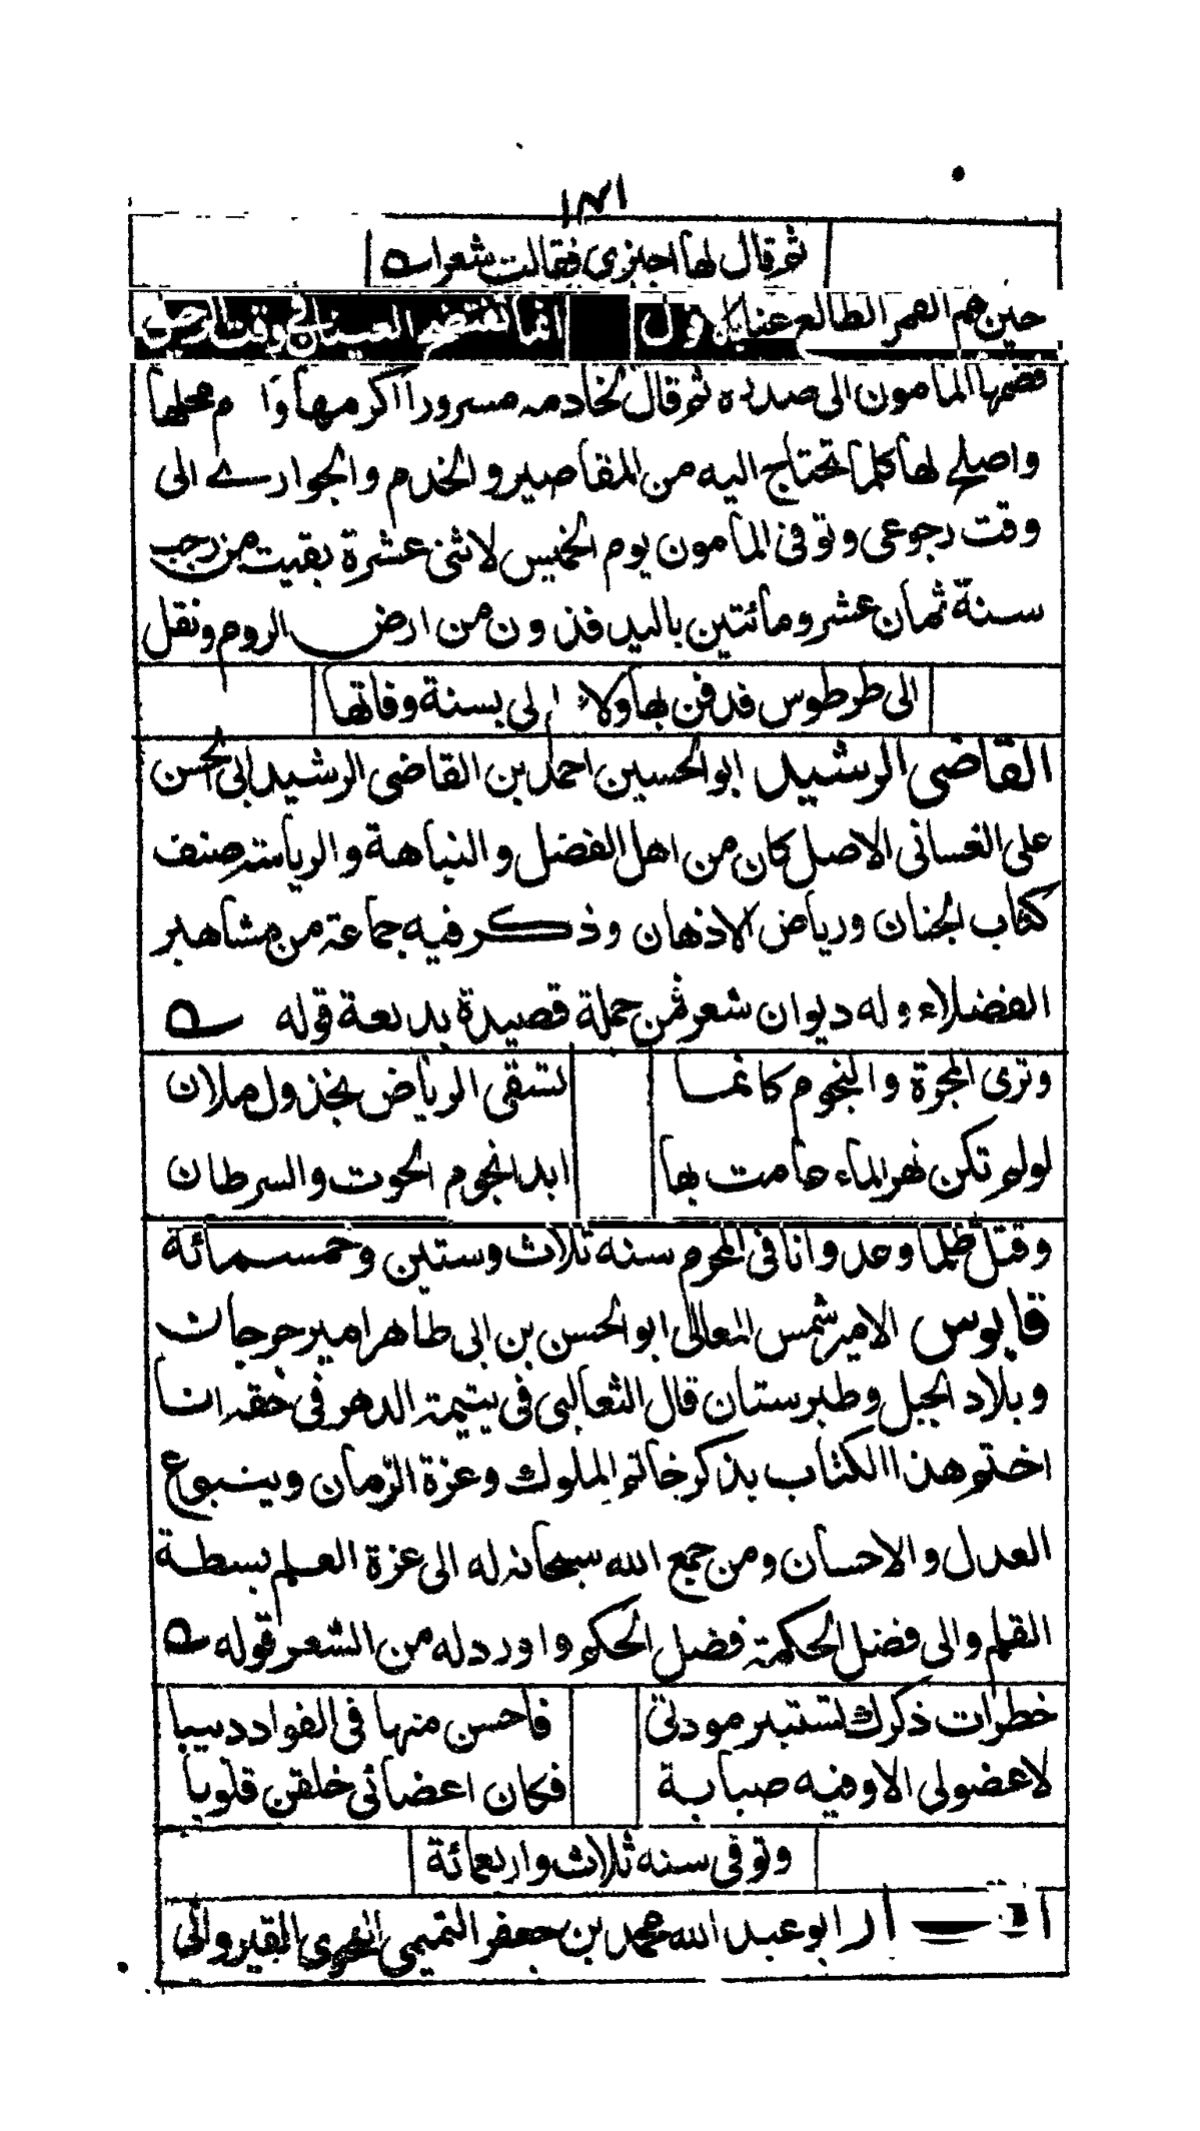 ١٣١
ثم قال لها اجيزى فقالت شعرا
حين هم القمر الطالع عنا بالافول انما تفتضح العينان فى وقت الرحيل
فضمها المامون الى صدره ثم قال لخادمه مسرورا اكرمها و محلها
واصلح لها كلما تحتاج اليه من المقاصير والخدم والجوارے الى
وقت رجوعى وتوفى المأمون يوم الخميس لاثنى عشرة بقيت من رجب
سنة ثمان عشر ومائتين باليدفذون من ارض الروم ونقل
الى طرطوس فدفن بها ولا لى بسنة وفاتها
القاضى الرشيد ابو الحسين احمد بن القاضى الرشيد ابى الحسن
على الغسانى الاصل كان من اهل الفضل والنباهة والرياسة صنف
كتاب الجنان ورياض الاذهان وذكر فيه جماعة من مشاهير
الفضلاء وله ديوان شعر فمن جملة قصيدة بديعة قوله
وترى المجرة والنجوم كانما تسقى الرياض بجذول ملان
لولم تكن نهر الماء عامت بها ابدا نجوم الحوت والسرطان
وقتل ظلما وعدوانا فى المحرم سنه ثلاث وستين وخمسمائة
قابوس الامير شمس المعالى ابو الحسن بن ابى طاهر امير جرجان
وبلاد الجبل وطبرستان قال الثعالبى فى يتيمة الدهر فى حقه انا
اختم هذا الكتاب بذكر خاتم الملوك وعزة الزمان وينبوع
العدل والاحسان ومن جمع الله سبحانه له الى عزة العلم بسطة
القلم والى فضل الحكمة فضل الحكم واورد له من الشعر قوله
خطرات ذكرك تستثير مودتى فاحسن منها فى الفواد دبيبا
لا عضو لى الا وفيه صبابة فكان اعضائى خلقن قلوبا
وتوفى سنه ثلاث واربعمائة
ابو عبد الله محمد بن جعفر التميمى النحوى القيروانى